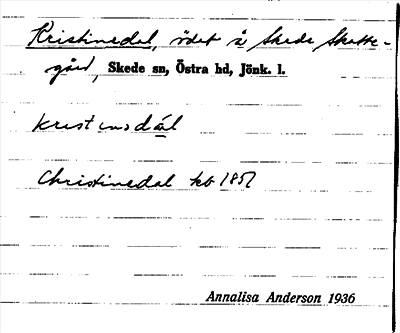 Kristinedal, ödet å Skede Skatte-
gård, Skede sn, Östra hd, Jönk. l.
krist insdál
Christinedal kb 1857
Annalisa Anderson 1936